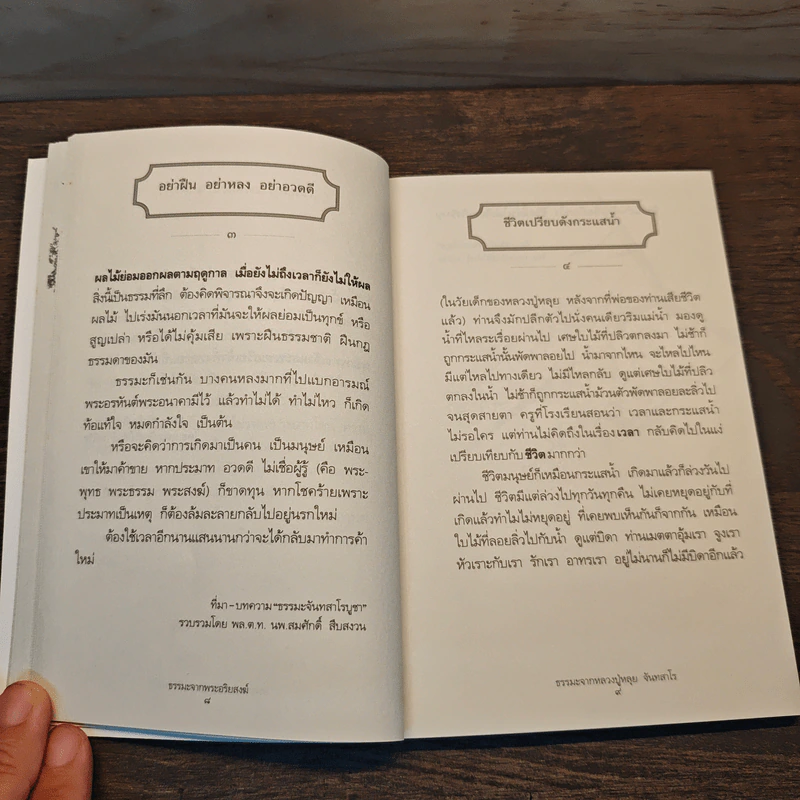 อย่าฝืน อย่าหลง อย่าอวดดี
๓
ผลไม้ย่อมออกผลตามฤดูกาล เมื่อยังไม่ถึงเวลาก็ยังไม่ให้ผล
สิ่งนี้เป็นธรรมที่ลึก ต้องคิดพิจารณาจึงจะเกิดปัญญา เหมือน
ผลไม้ ไปเร่งมันนอกเวลาที่มันจะให้ผลย่อมเป็นทุกข์ หรือ
สูญเปล่า หรือได้ไม่คุ้มเสีย เพราะฝืนธรรมชาติ ฝืนกฎ
ธรรมดาของมัน
ธรรมะก็เช่นกัน บางคนหลงมากที่ไปแบกอารมณ์
พระอรหันต์พระอนาคามีไว้ แล้วทำไม่ได้ ทำไม่ไหว ก็เกิด
ท้อแท้ใจ หมดกำลังใจ เป็นต้น
หรือจะคิดว่าการเกิดมาเป็นคน เป็นมนุษย์ เหมือน
เขาให้มาค้าขาย หากประมาท อวดดี ไม่เชื่อผู้รู้ (คือ พระ-
พุทธ พระธรรม พระสงฆ์) ก็ขาดทุน หากโชคร้ายเพราะ
ประมาทเป็นเหตุ ก็ต้องล้มละลายกลับไปอยู่นรกใหม่
ต้องใช้เวลาอีกนานแสนนานกว่าจะได้กลับมาทำการค้า
ใหม่
ที่มา - บทความ "ธรรมะจันทสาโรบูชา"
รวบรวมโดย พล.ต.ท. นพ.สมศักดิ์ สืบสงวน
ธรรมะจากพระอริยสงฆ์
๘
ชีวิตเปรียบดังกระแสน้ำ
๔
(ในวัยเด็กของหลวงปู่หลุย หลังจากที่พ่อของท่านเสียชีวิต
แล้ว) ท่านจึงมักปลีกตัวไปนั่งคนเดียวริมแม่น้ำ มองดู
น้ำที่ไหลระเรื่อยผ่านไป เศษใบไม้ที่ปลิวตกลงมา ไม่ช้าก็
ถูกกระแสน้ำนั้นพัดพาลอยไป น้ำมาจากไหน จะไหลไปไหน
มีแต่ไหลไปทางเดียว ไม่มีไหลกลับ ดูแต่เศษใบไม้ที่ปลิว
ตกลงในน้ำ ไม่ช้าก็ถูกกระแสน้ำม้วนตัวพัดพาลอยละลิ่วไป
จนสุดสายตา ครูที่โรงเรียนสอนว่า เวลาและกระแสน้ำ
ไม่รอใคร แต่ท่านไม่คิดถึงในเรื่องเวลา กลับคิดไปในแง่
เปรียบเทียบกับชีวิตมากกว่า
ชีวิตมนุษย์ก็เหมือนกระแสน้ำ เกิดมาแล้วก็ล่วงวันไป
ผ่านไป ชีวิตมีแต่ล่วงไปทุกวันทุกคืน ไม่เคยหยุดอยู่กับที่
เกิดแล้วทำไมไม่หยุดอยู่ ที่เคยพบเห็นกันก็จากกัน เหมือน
ใบไม้ที่ลอยลิ่วไปกับน้ำ ดูแต่บิดา ท่านเมตตาอุ้มเรา จูงเรา
หัวเราะกับเรา รักเรา อาทรเรา อยู่ไม่นานก็ไม่มีบิดาอีกแล้ว
ธรรมะจากหลวงปู่หลุย จันทสาโร
๙